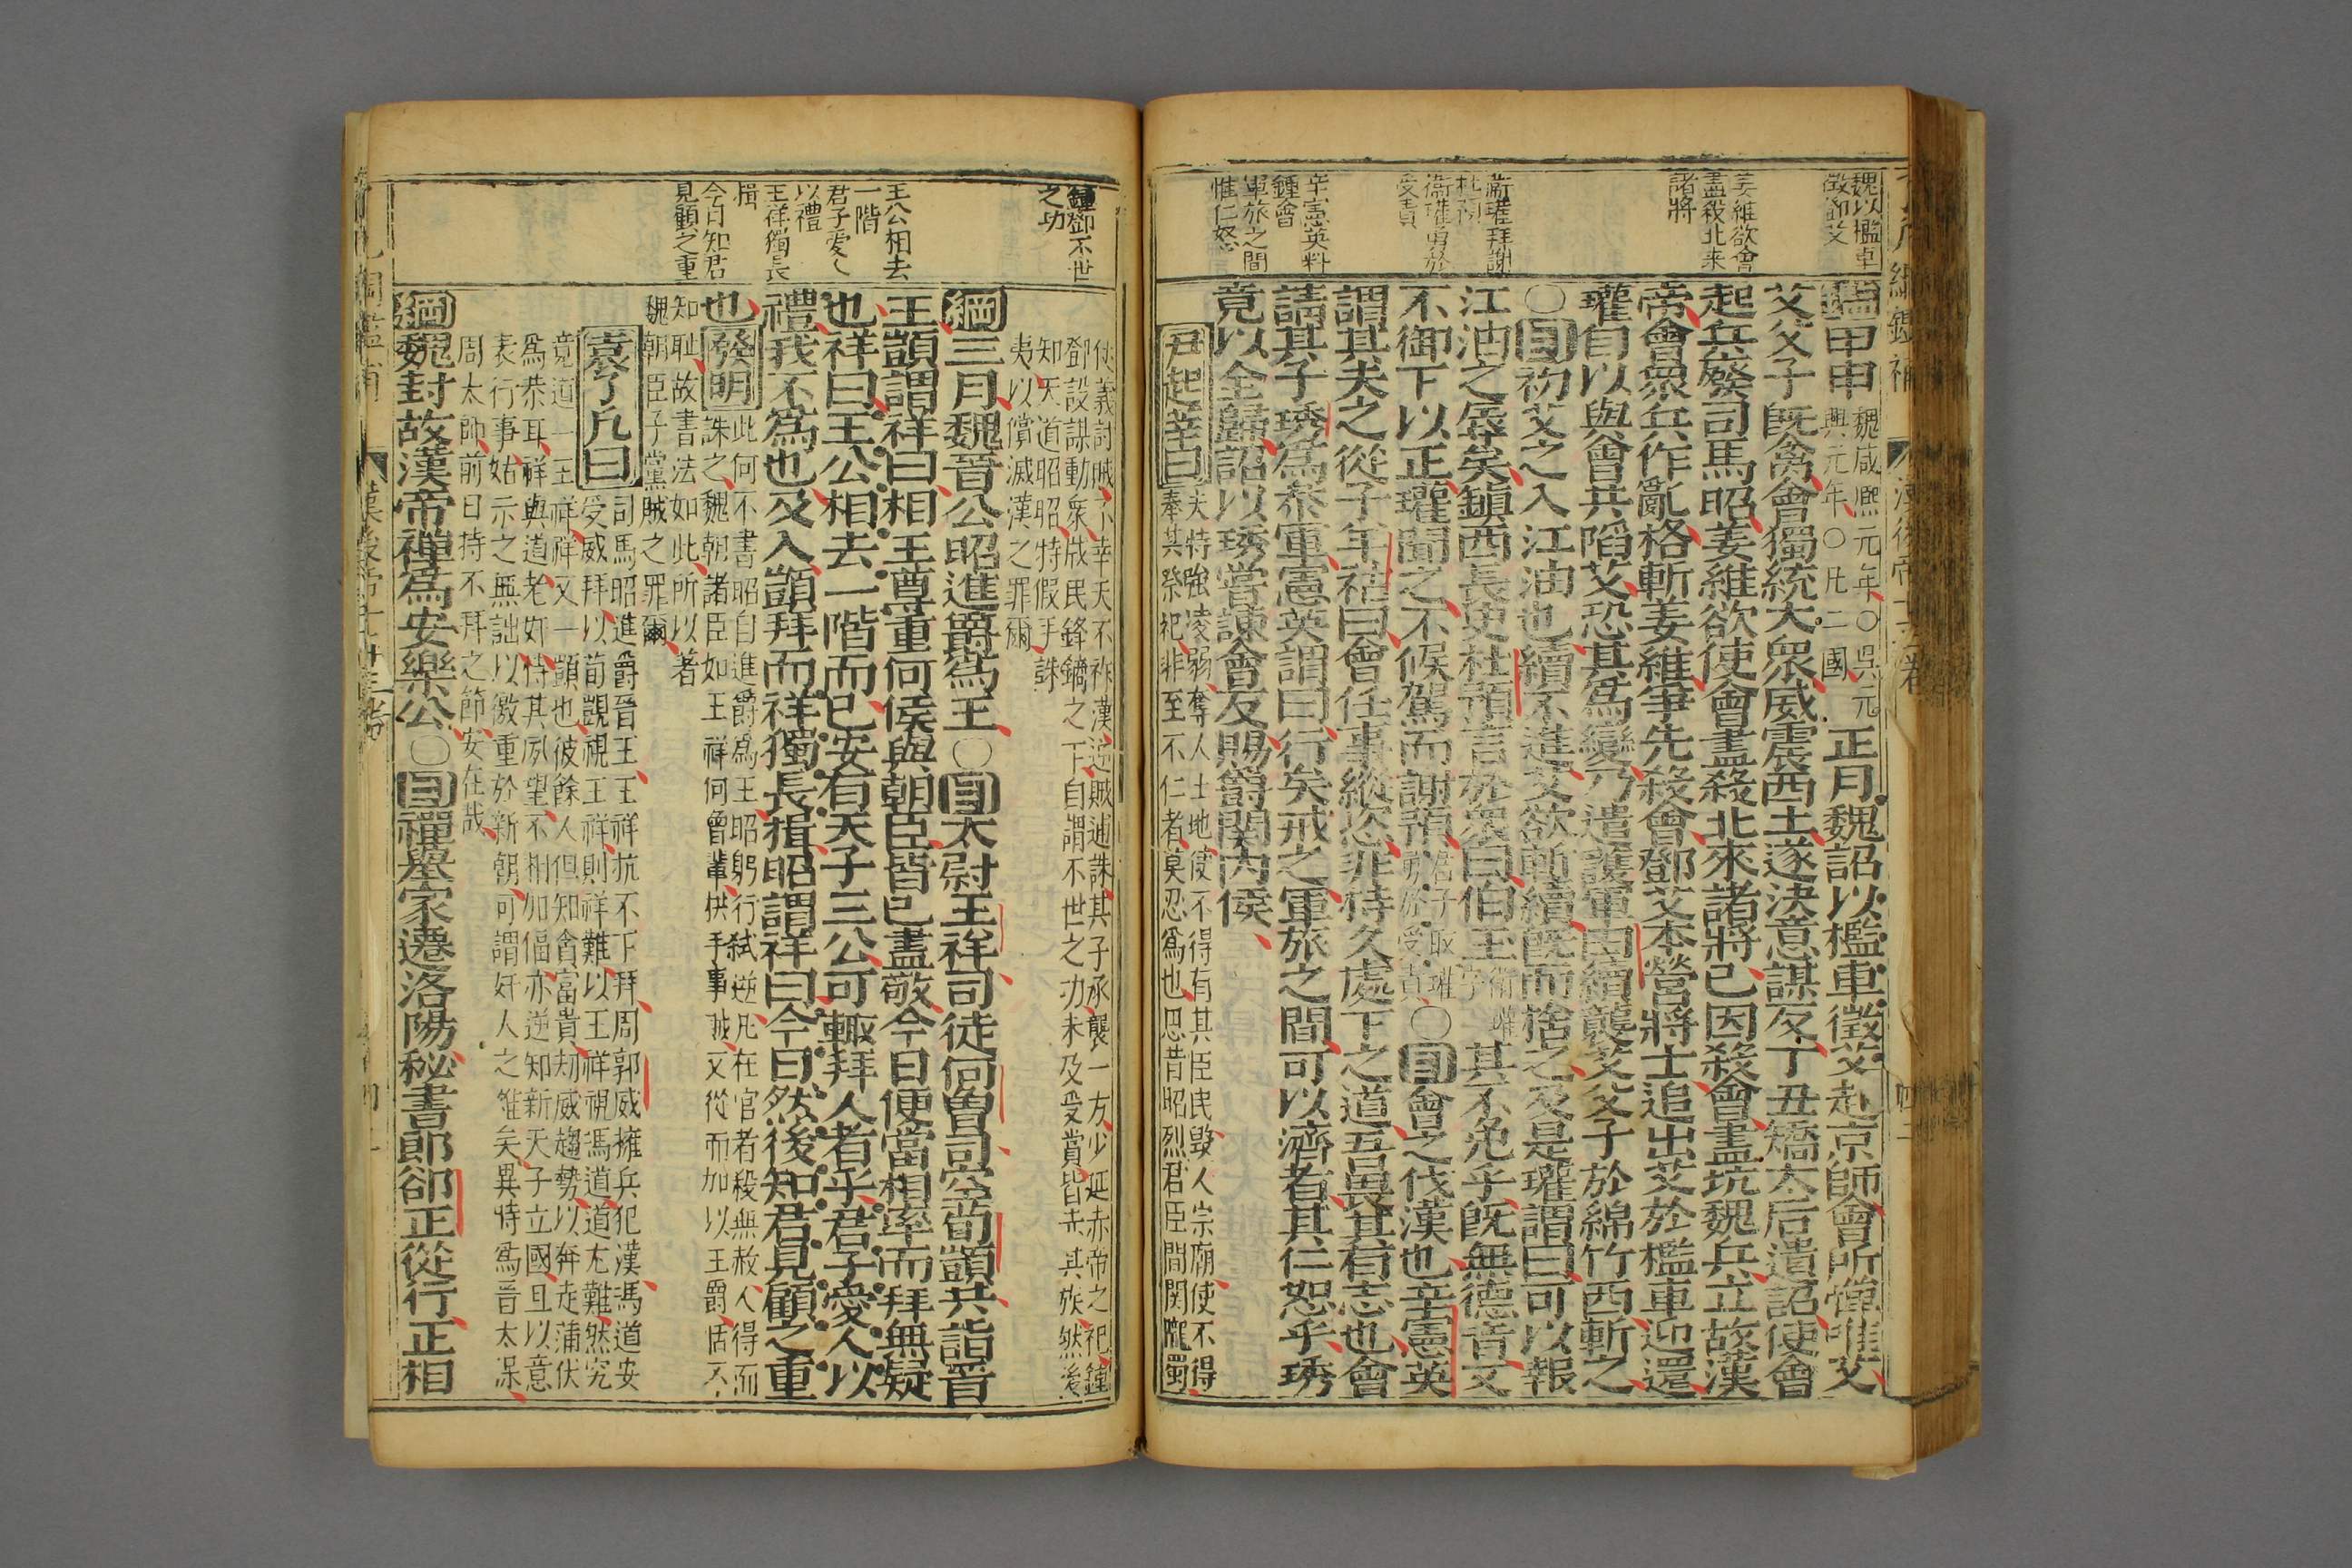 魏以檻車
徵鄧艾
姜維欲會
盡殺北來
諸將
衛瓘拜謝
杜預
衛瓘勇於
受責
辛憲英料
鍾會
軍旅之間
惟仁恕
甲申
魏咸熙元年〇吳元
興元年〇凡二國
正月魏詔以檻車徵艾赴京師會所憚惟艾
艾父子旣禽會獨統大衆威震西土遂決意謀反丁丑矯太后遺詔使會
起兵廢司馬昭姜維欲使會盡殺北來諸將已因殺會盡坑魏兵立故漢
帝會衆兵作亂格斬姜維爭先殺會鄧艾本營將士追出艾於檻車迎還
瓘自以與會共陷艾恐其爲變乃遣護軍田續襲艾父子於綿竹西斬之
〇目初艾之入江油也續不進艾欲斬續旣而捨之及是瓘謂曰可以報
江油之辱矣鎮西長史杜預言於衆曰伯玉
衛瓘
字
其不免乎旣無德音又
不御下以正瓘聞之不候駕而謝預
君子取瓘
勇於受責
〇目會之伐漢也辛憲英
謂其夫之從子羊祜曰會任事縱恣非持久處下之道吾畏其有志也會
請其子琇爲參軍憲英謂曰行矣戒之軍旅之間可以濟者其仁恕乎琇
竟以全歸詔以琇嘗諫會反賜爵関內侯
尹起莘曰
夫恃強凌弱奪人土地使不得有其臣民毀人宗廟使不得
奉其祭祀非至不仁者莫忍爲也思昔昭烈君臣間関隴蜀
鍾鄧不世
之功
王公相去
一階
君子愛人
以禮
王祥獨長
揖
今日知君
見顧之重
仗義討賊不幸天不祚漢逆賊逋誅其子承襲一方少延赤帝之祀鍾
鄧設謀動衆戕民鋒鏑之下自謂不世之功未及受賞皆赤其族然後
知天道昭昭特假手誅
夷以償滅漢之罪爾
綱三月魏晉公昭進爵爲王〇目太尉王祥司徒何曾司空荀顗共詣晉
王顗謂祥曰相王尊重何侯與朝臣皆已盡敬今日便當相率而拜無疑
也祥曰王公相去一階而已安有天子三公可輙拜人者乎君子愛人以
禮我不爲也及入顗拜而祥獨長揖昭謂祥曰今日然後知君見顧之重
也
發明
此何不書昭自進爵爲王昭躬行弑逆凡在官者殺無赦人得而
誅之魏朝諸臣如王祥何曾輩拱手事賊又從而加以王爵恬不
知耻故書法如此所以著
魏朝臣子黨賊之罪爾
袁了凡曰
司馬昭進爵晉王王祥抗不下拜周郭威擁兵犯漢馮道安
受威拜以荀覬視王祥則祥難以王祥視馮道道尤難然究
竟道一王祥祥又一顗也彼餘人但知貪富貴刼威趨勢以奔走蒲伏
爲恭耳祥與道老奸恃其夙望不相加偪亦逆知新天子立國且以意
表行事姑示之無詘以徼重於新朝可謂奸人之雄矣異時爲晉太保
周太師前日持不拜之節安在哉
綱魏封故漢帝禪爲安樂公〇目禪舉家遷洛陽秘書郎郤正從行正相